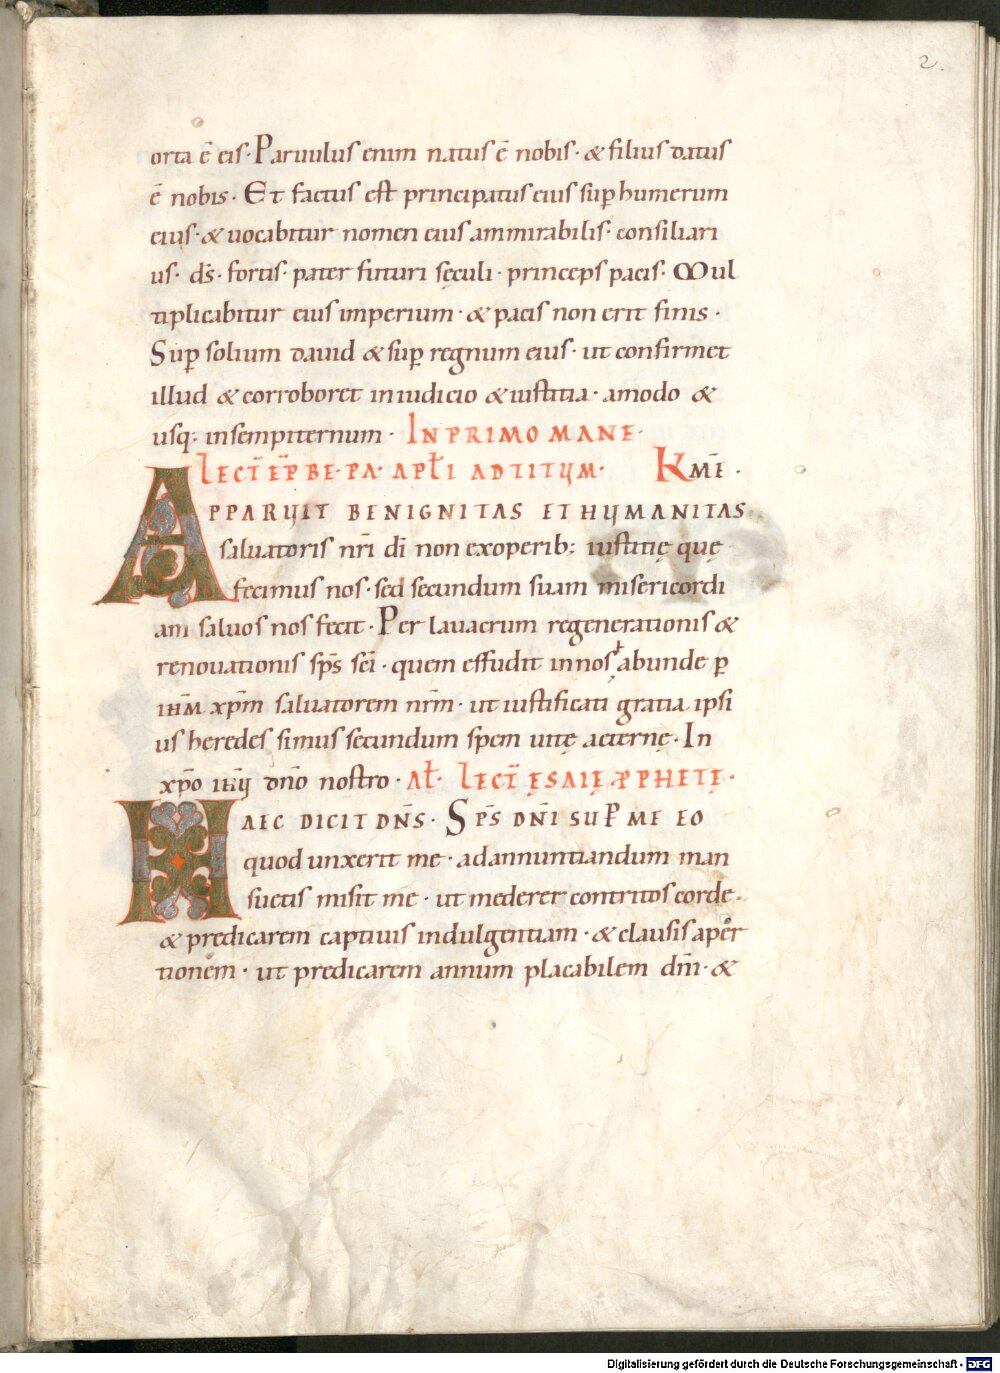 2.
orta ē eis· Paruulus enim natus ē nobis· & filius datus
ē nobis· Et factus est principatus eius sup̄ humerum
eius· & uocabitur nomen eius ammirabilis· consiliari
us· ds̄· fortis· pater futuri sęculi· princeps pacis· Mul
tiplicabitur eius imperium· & pacis non erit finis·
Sup̄ solium dauid & sup̄ regnum eius· ut confirmet
illud & corroboret in iudicio & iustitia· amodo &
usq; in sempiternum· IN PRIMO MANE·
LECT̄ EP̄ BE· PA· APŁI AD TITUM· KMĒ·
APPARUIT BENIGNITAS ET HUMANITAS
saluatoris nr̄i dī non ex operib; iustitię quę
fecimus nos· sed secundum suam misericordi
am saluos nos fecit· Per lauacrum regenerationis &
renouationis sp̄s sc̄i· quem effudit in nos abunde ꝑ
ihm̄ xp̄m saluatorem nr̄m· ut iustificati gratia ipsi
us heredes simus secundum spem uitę aeternę· In
xp̄o ihū dn̄o nostro· AŁ· LECT̄ ĘSAIĘ PPHETĘ·
HAEC DICIT DN̄S· SP̄S DN̄I SUP̄ ME EO
quod unxerit me· ad annuntiandum man
suetis misit me· ut mederer contritos corde·
& predicarem captiuis indulgentiam· & clausis aper
tionem· ut predicarem annum placabilem dn̄i· &
Digitalisierung gefördert durch die Deutsche Forschungsgemeinschaft - DFG